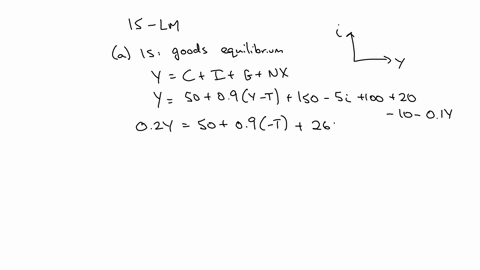 IS-LM
i
(a) IS: goods equilibrium
Y
Y = C + I + G + NX
Y = 50 + 0.9(Y-T) + 150 - 5i + 100 + 20
- 10 - 0.1Y
0.2Y = 50 + 0.9(-T) + 26